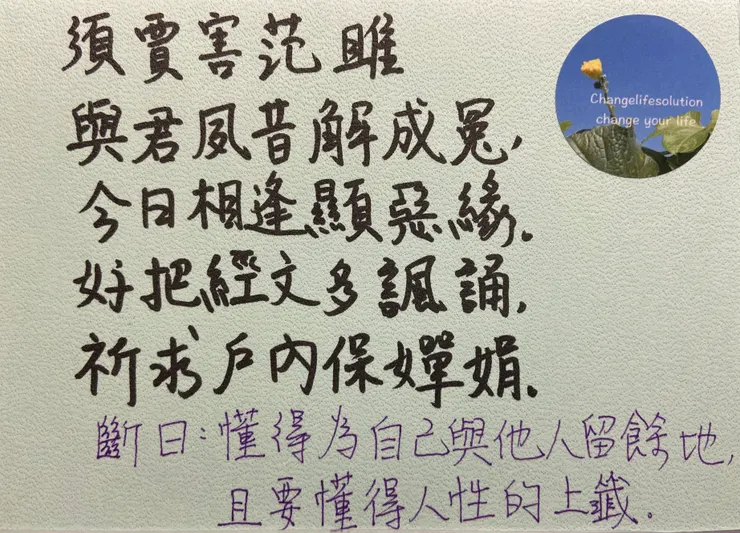 須賈害范雎
與君夙昔解成冤,
今日相逢顯惡緣.
好把經文多諷誦,
祈求戶內保嬋娟.
斷曰:懂得為自己與他人留餘地,
且要懂得人性的上籤.
Changelifesolution
change your life